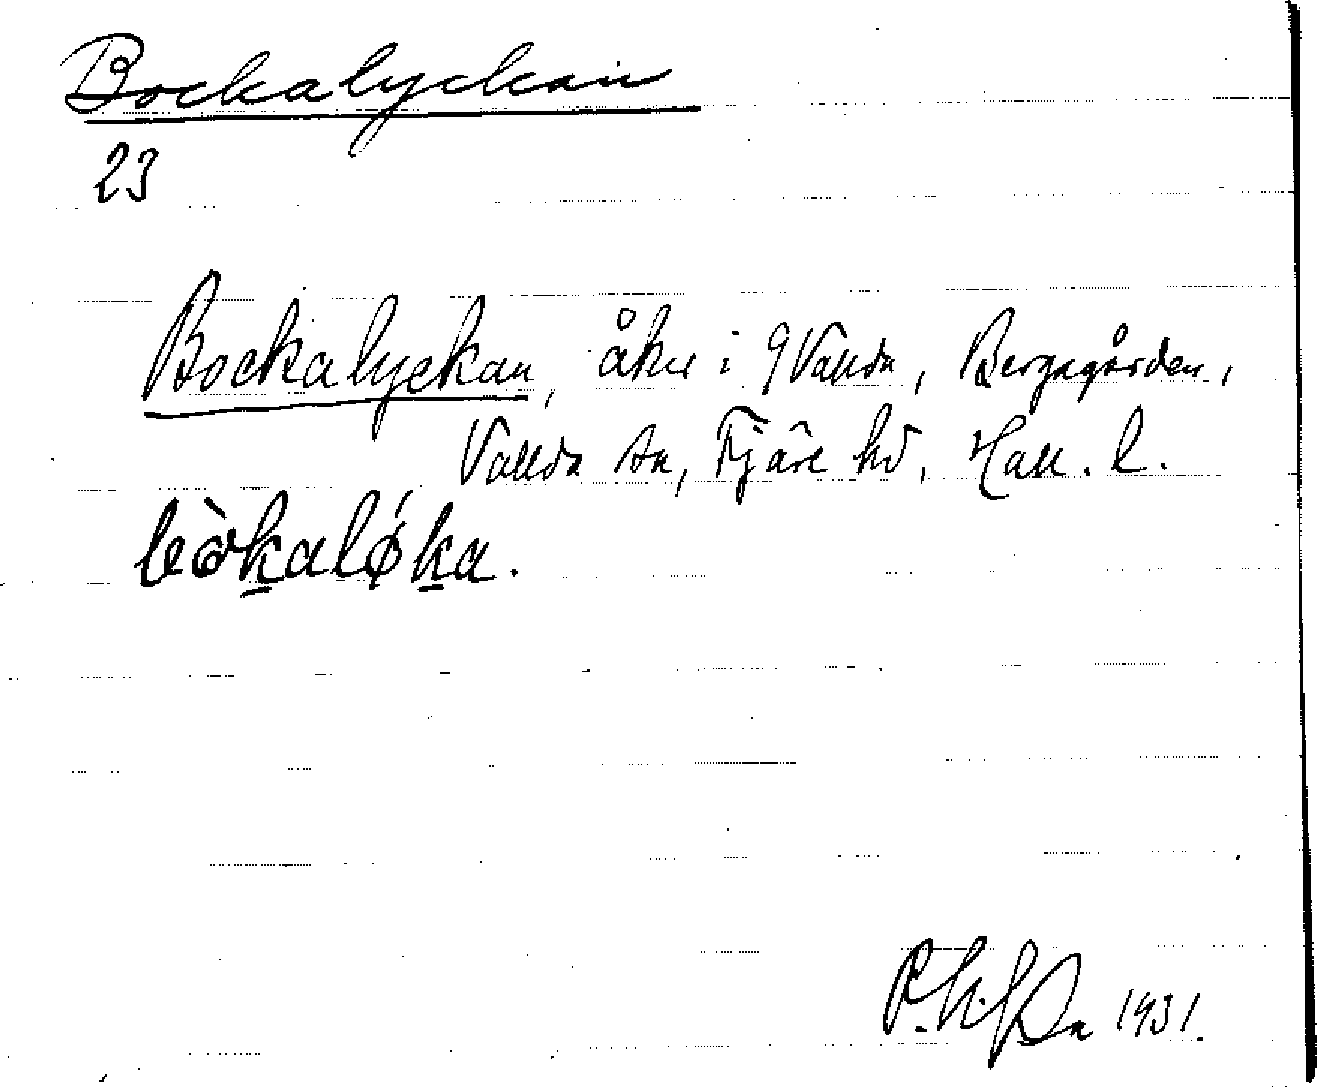 Bockalyckan
23
Bockalyckan, åker i 9 Vallda, Bergsgården,
Vallda sn, Fjäre hd, Hall. l.
bòkalǿka.
1931.